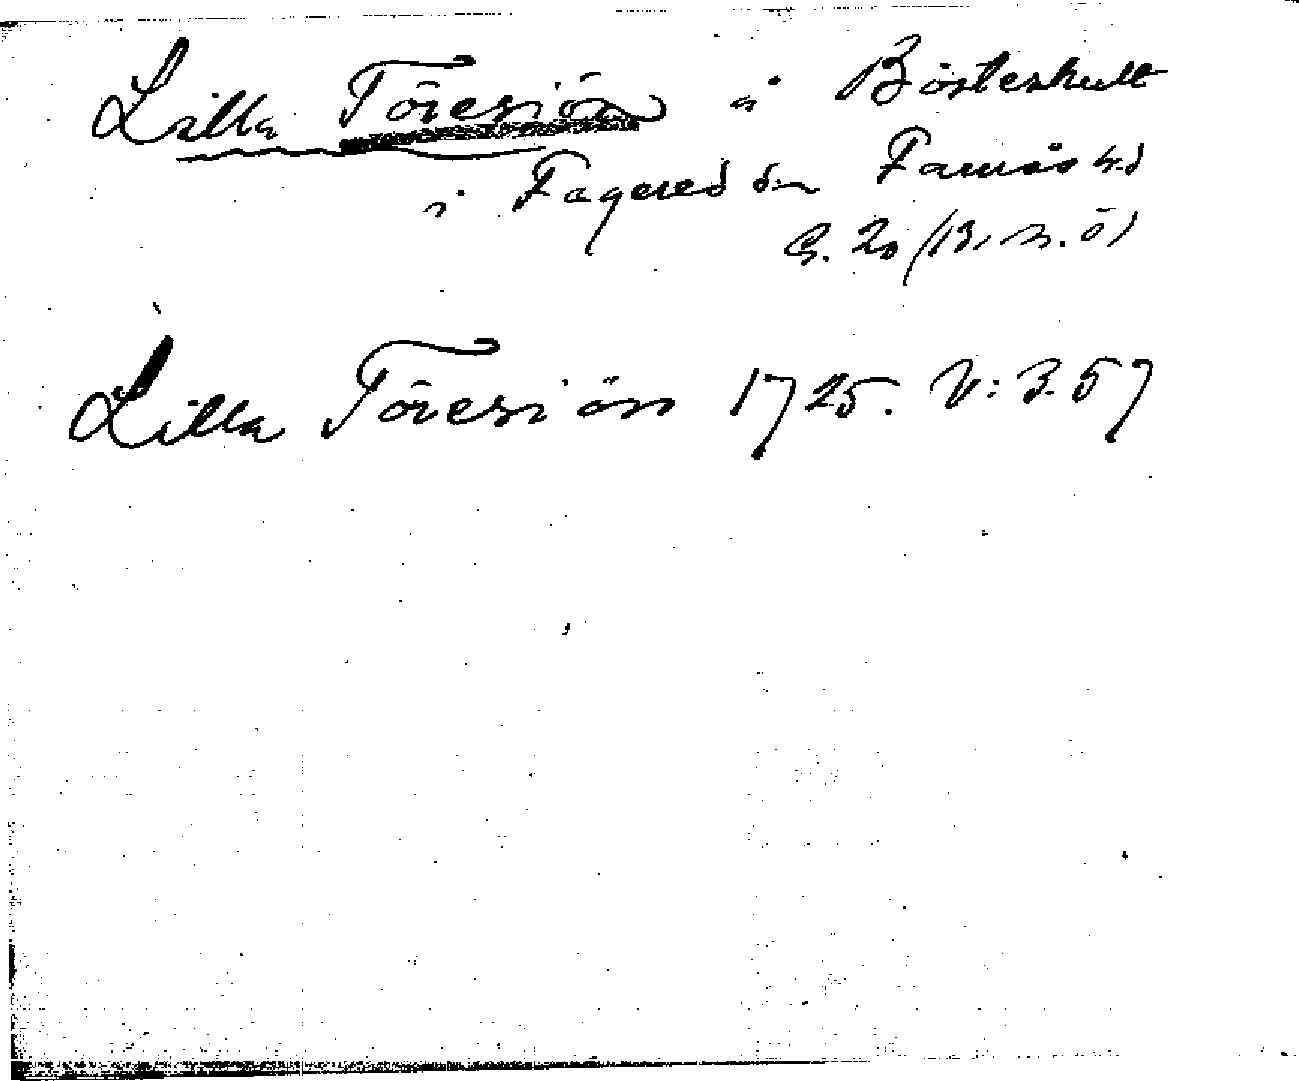 Lilla Töresjön å Bösteshult
i Fagered sn Faurås hd
G. 20 (B, n. ö)
Lilla Töresjön 1725. V: 3. 57